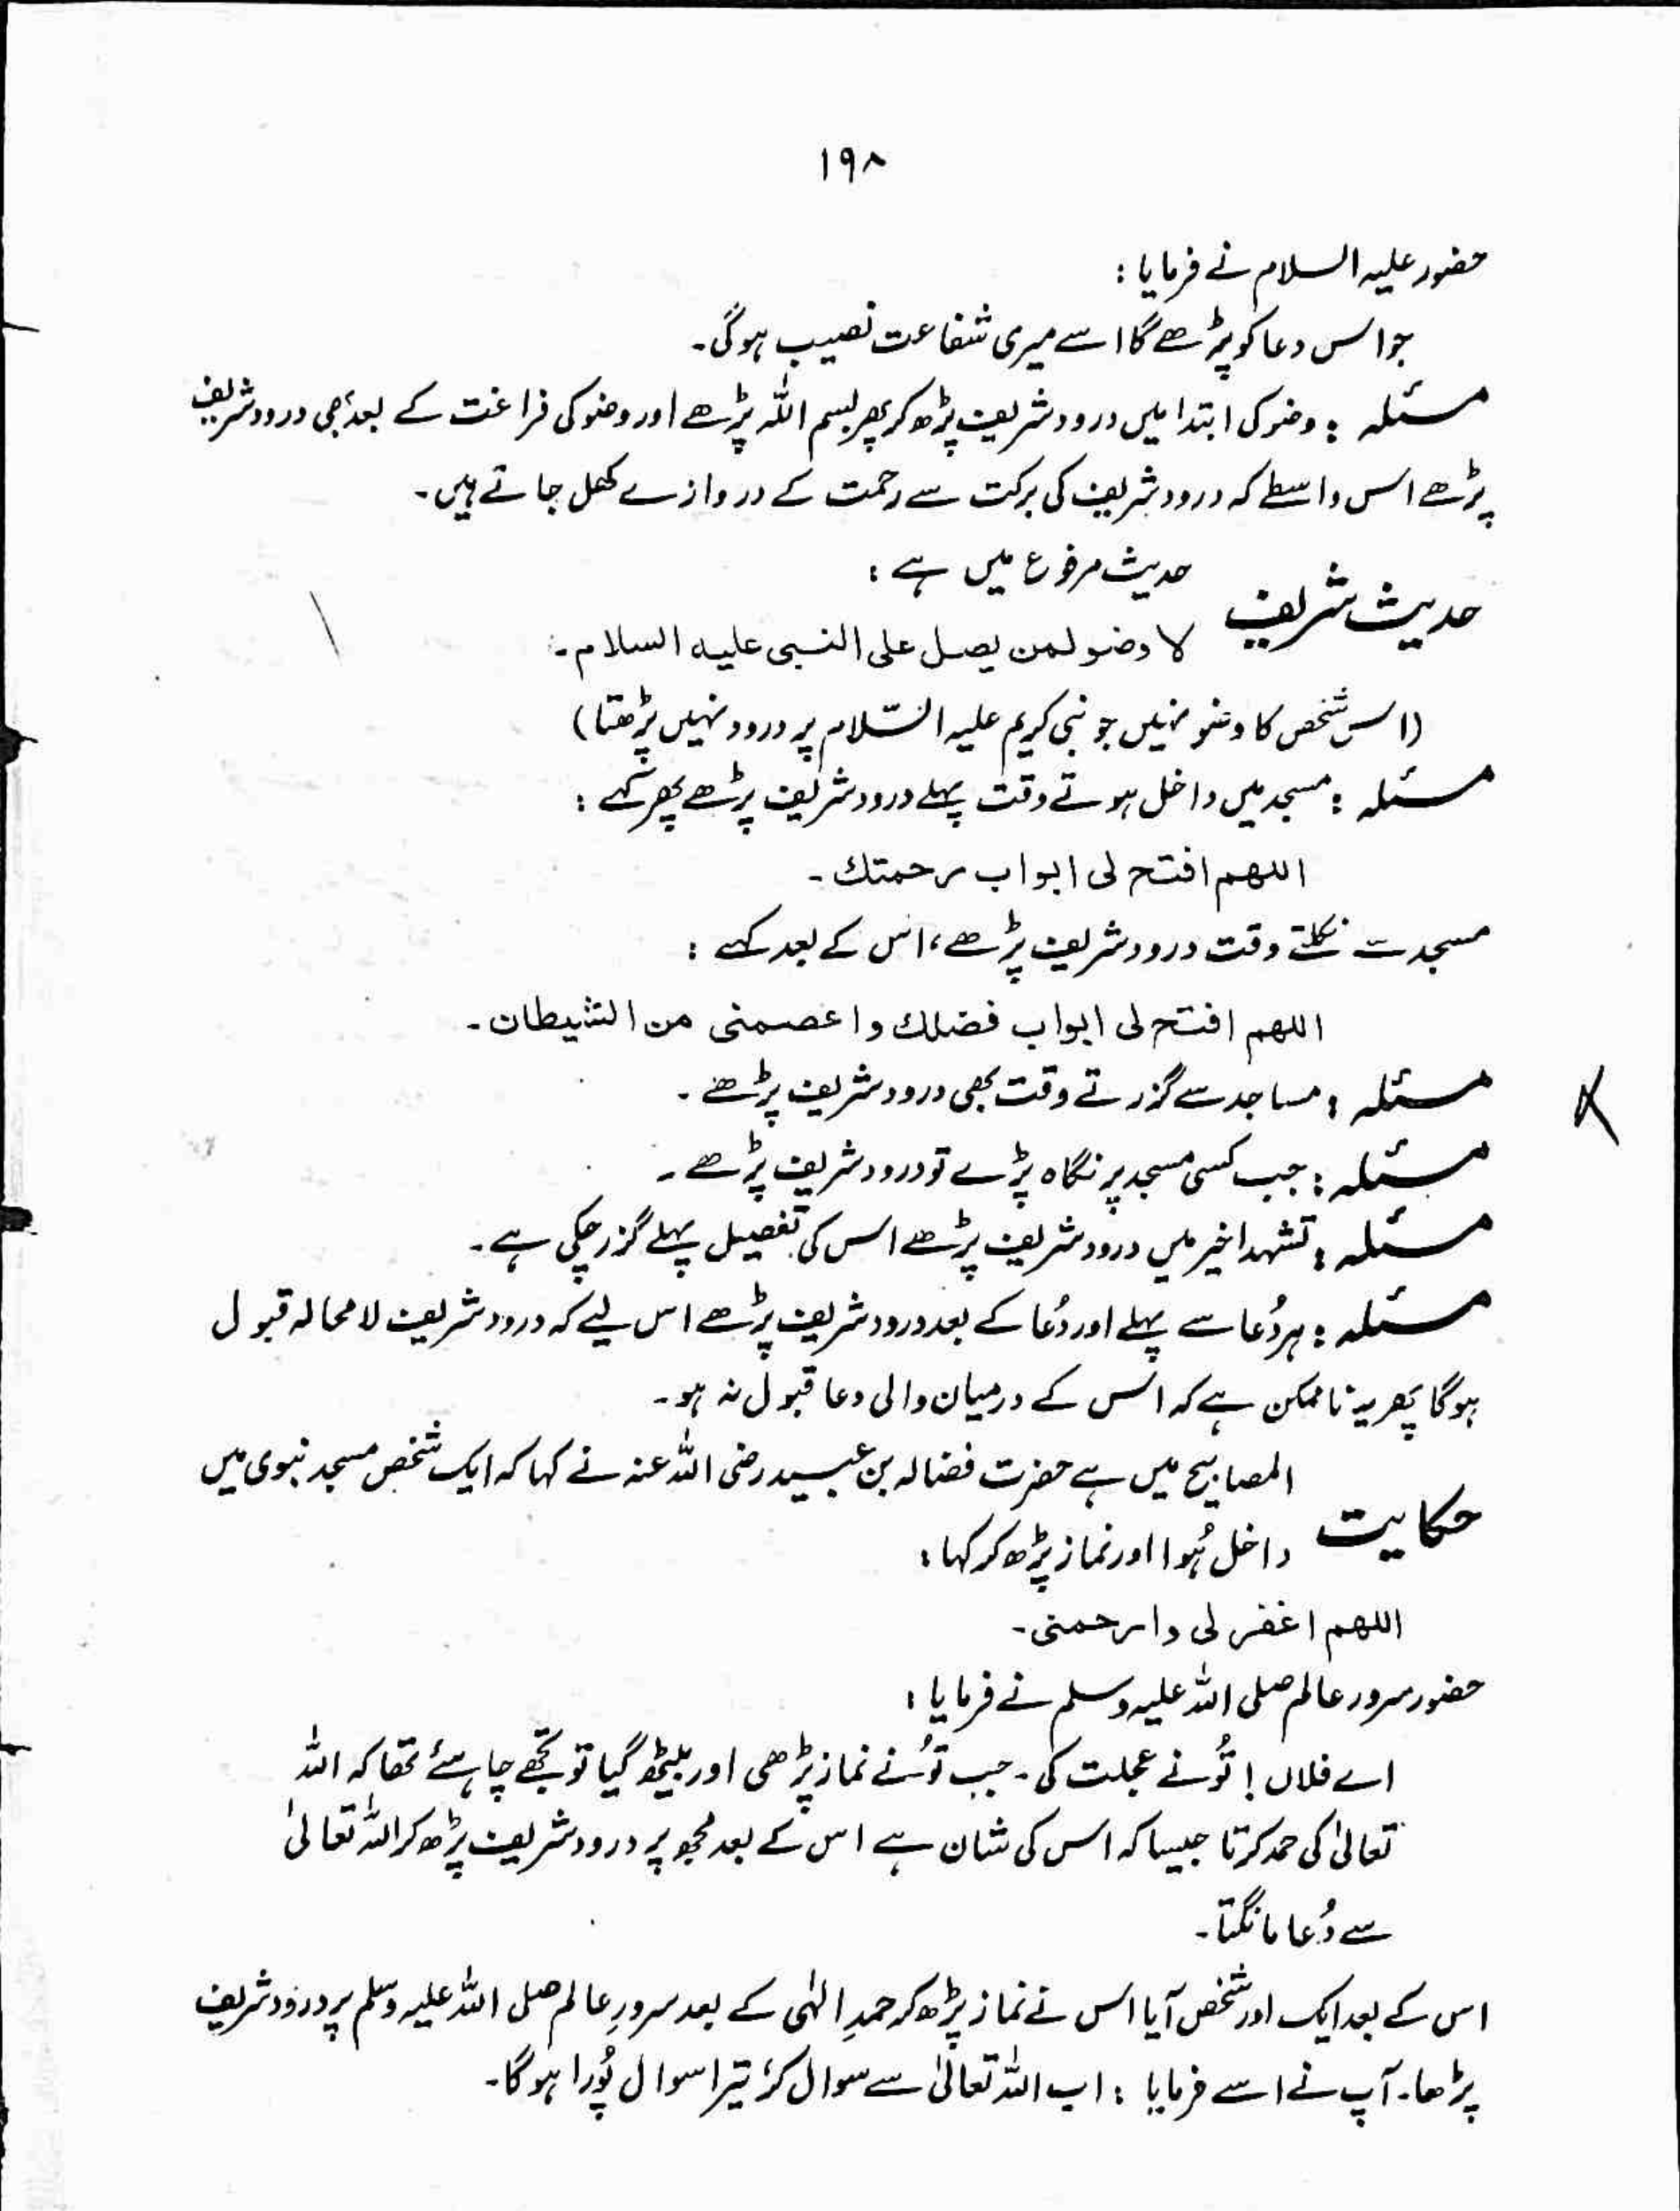 ۱۹۸
حضور علیہ السلام نے فرمایا :
جو اس دعا کو پڑھے گا اسے میری شفاعت نصیب ہوگی۔
مسئلہ : وضو کی ابتدا میں درود شریف پڑھ کر پھر بسم اللہ پڑھے اور وضو کی فراغت کے بعد بھی درود شریف
پڑھے اس واسطے کہ درود شریف کی برکت سے رحمت کے دروازے کھل جاتے ہیں۔
حدیث شریف حدیث مرفوع میں ہے :
لا وضو لمن یصل علی النبی علیہ السلام۔
(اس شخص کا وضو نہیں جو نبی کریم علیہ السّلام پر درود نہیں پڑھتا)
مسئلہ : مسجد میں داخل ہوتے وقت پہلے درود شریف پڑھے پھر کہے :
اللھم افتح لی ابواب رحمتك۔
مسجد سے نکلتے وقت درود شریف پڑھے، اس کے بعد کہے :
اللھم افتح لی ابواب فضلك واعصمنی من الشیطان۔
مسئلہ : مساجد سے گزرتے وقت بھی درود شریف پڑھے۔
مسئلہ : جب کسی مسجد پر نگاہ پڑے تو درود شریف پڑھے۔
مسئلہ : تشہد اخیر میں درود شریف پڑھے اس کی تفصیل پہلے گزر چکی ہے۔
مسئلہ : ہر دُعا سے پہلے اور دُعا کے بعد درود شریف پڑھے اس لیے کہ درود شریف لا محالہ قبول
ہوگا پھر یہ ناممکن ہے کہ اس کے درمیان والی دعا قبول نہ ہو۔
حکایت المصابیح میں ہے حضرت فضالہ بن عبید رضی اللہ عنہ نے کہا کہ ایک شخص مسجد نبوی میں
داخل ہُوا اور نماز پڑھ کر کہا :
اللھم اغفر لی وارحمنی۔
حضور سرور عالم صلی اللہ علیہ وسلم نے فرمایا :
اے فلاں ! تُو نے عجلت کی۔ جب تُو نے نماز پڑھی اور بیٹھ گیا تو تجھے چاہئے تھا کہ اللہ
تعالیٰ کی حمد کرتا جیسا کہ اس کی شان ہے اس کے بعد مجھ پر درود شریف پڑھ کر اللہ تعالیٰ
سے دُعا مانگتا۔
اس کے بعد ایک اور شخص آیا اس نے نماز پڑھ کر حمدِ الہٰی کے بعد سرورِ عالم صلی اللہ علیہ وسلم پر درود شریف
پڑھا۔ آپ نے اسے فرمایا : اب اللہ تعالیٰ سے سوال کر تیرا سوال پُورا ہوگا۔